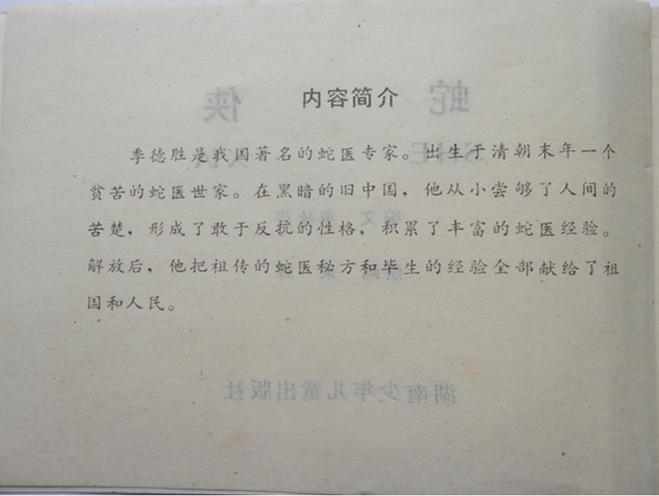 内容简介
季德胜是我国著名的蛇医专家。出生于清朝末年一个
贫苦的蛇医世家。在黑暗的旧中国，他从小尝够了人间的
苦楚，形成了敢于反抗的性格，积累了丰富的蛇医经验。
解放后，他把祖传的蛇医秘方和毕生的经验全部献给了祖
国和人民。
蛇侠
SHE XIA
湖南少年儿童出版社